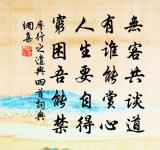 無客共談道
有誰能賞心
人生要自得
窮困吾能禁
行之遣興四首詞典
網集